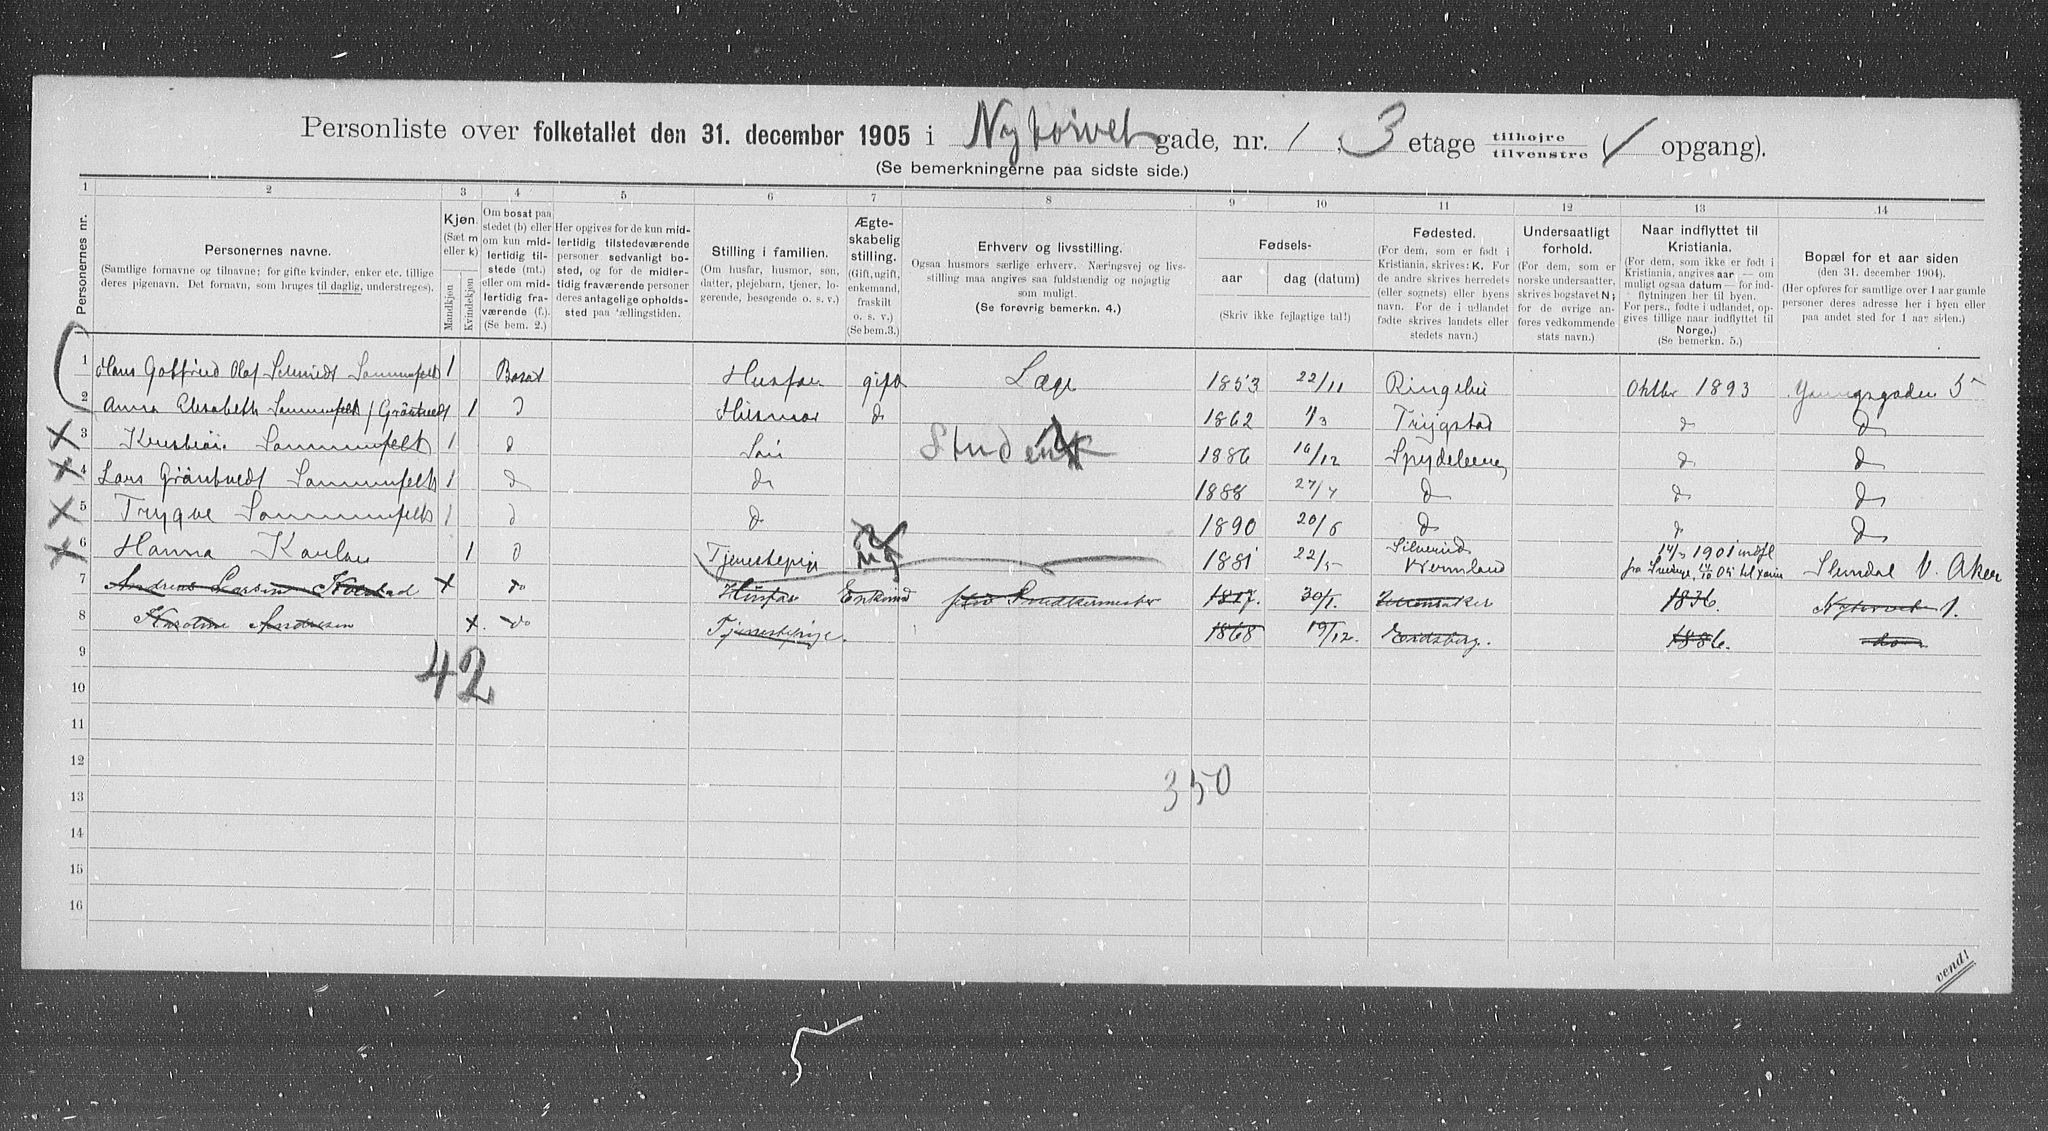 Personliste over folketallet den 31. december 1905 i Nytorvet gade, nr. 1, 3 etage tilhøjre / tilvenstre ✓ opgang).
(Se bemerkningerne paa sidste side.)
1 2 3 4 5 6 7 8 9 10 11 12 13 14
Personernes nr.
Personernes navne.
(Samtlige fornavne og tilnavne; for gifte kvinder, enker etc. tillige deres pigenavn. Det fornavn, som bruges til daglig, understreges).
Kjøn.
(Sæt m eller k)
Mandkjøn
Kvindekjøn
Om bosat paa stedet (b) eller om kun midlertidig tilstede (mt.) eller om midlertidig fraværende (f.). (Se bem. 2.)
Her opgives for de kun midlertidig tilstedeværende personer sedvanligt bosted, og for de midlertidig fraværende personer deres antagelige opholdssted paa tællingstiden.
Stilling i familien.
(Om husfar, husmor, søn, datter, plejebarn, tjener, logerende, besøgende o. s. v.)
Ægteskabelig stilling.
(Gift, ugift, enkemand, fraskilt o. s. v.)
(Se bem. 3.)
Erhverv og livsstilling.
Ogsaa husmors særlige erhverv. Næringsvej og livsstilling maa angives saa fuldstændig og nøjagtig som muligt.
(Se forøvrig bemerkn. 4.)
Fødsels-
aar
dag (datum)
(Skriv ikke fejlagtige tal!)
Fødested.
(For dem, som er født i Kristiania, skrives: K. For de andre skrives herredets (eller sognets) eller byens navn. For de i udlandet fødte skrives landets eller stedets navn.)
Undersaatligt forhold.
(For dem, som er norske undersaatter, skrives bogstavet N; for de øvrige anføres vedkommende stats navn.)
Naar indflyttet til Kristiania.
(For dem, som ikke er født i Kristiania, angives aar — om muligt ogsaa datum — for indflytningen her til byen. For pers., fødte i udlandet, opgives tillige naar indflyttet til Norge.)
(Se bemerkn. 5.)
Bopæl for et aar siden
(den 31. december 1904).
(Her opføres for samtlige over 1 aar gamle personer deres adresse her i byen eller paa andet sted for 1 aar siden.)
1 Hans Gottfried Olaf Schmidt Sommerfelt 1 Bosat Husfar gift Læge 1853 22/11 Ringebu Oktbr 1893 Youngsgaden 5
2 Anna Elisabeth Sommerfelt f Grøntvedt 1 d Husmor d 1862 1/3 Trygstad d d
3 Kristian Sommerfelt 1 d Søn Student 1886 16/12 d d
4 Lars Grøntvedt Sommerfelt 1 d d 1888 27/7 d d d
5 Trygve Sommerfelt 1 d d 1890 20/6 d d d
6 Hanna Karlson 1 d Tjenestepige ug 1881 22/5 Vermland 14/3 1901 indfl V. Aker
7 Andreas Larsen x do Husfar Enkemd Snedkermester 1817. 30/1. 1836. Nytorvet 1.
8 Karoline Andresen x. do Tjenestepige. 1868 19/12. Eidsberg. 1886. do
9
42
10
11
12
13 350
14
15
16
vend!